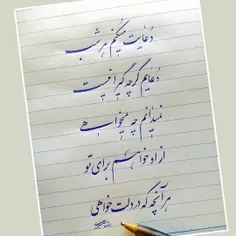 دعایت میکنم هر شب
دعایم گرچه گیرا نیست
نمیدانم چه میخواهی
از او خواهم برای تو
هر آنچه که در دلت خواهی